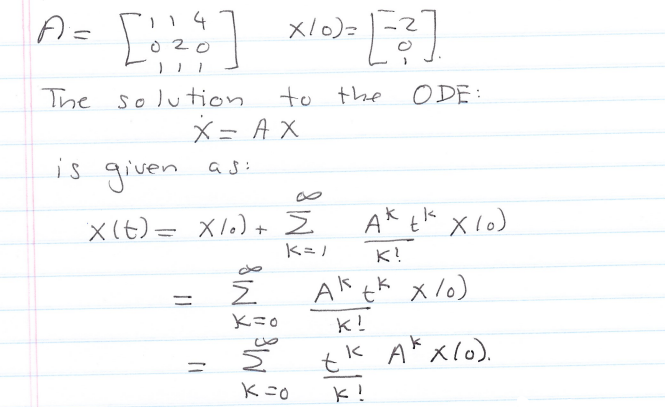 A = [1 1 4; 0 2 0; 1 1 1] X(0) = [-2; 0; 1].
The solution to the ODE:
Ẋ = A X
is given as:
X(t) = X(0) + ∑_{k=1}^{∞} A^k t^k / k! X(0)
= ∑_{k=0}^{∞} A^k t^k / k! X(0)
= ∑_{k=0}^{∞} t^k / k! A^k X(0).